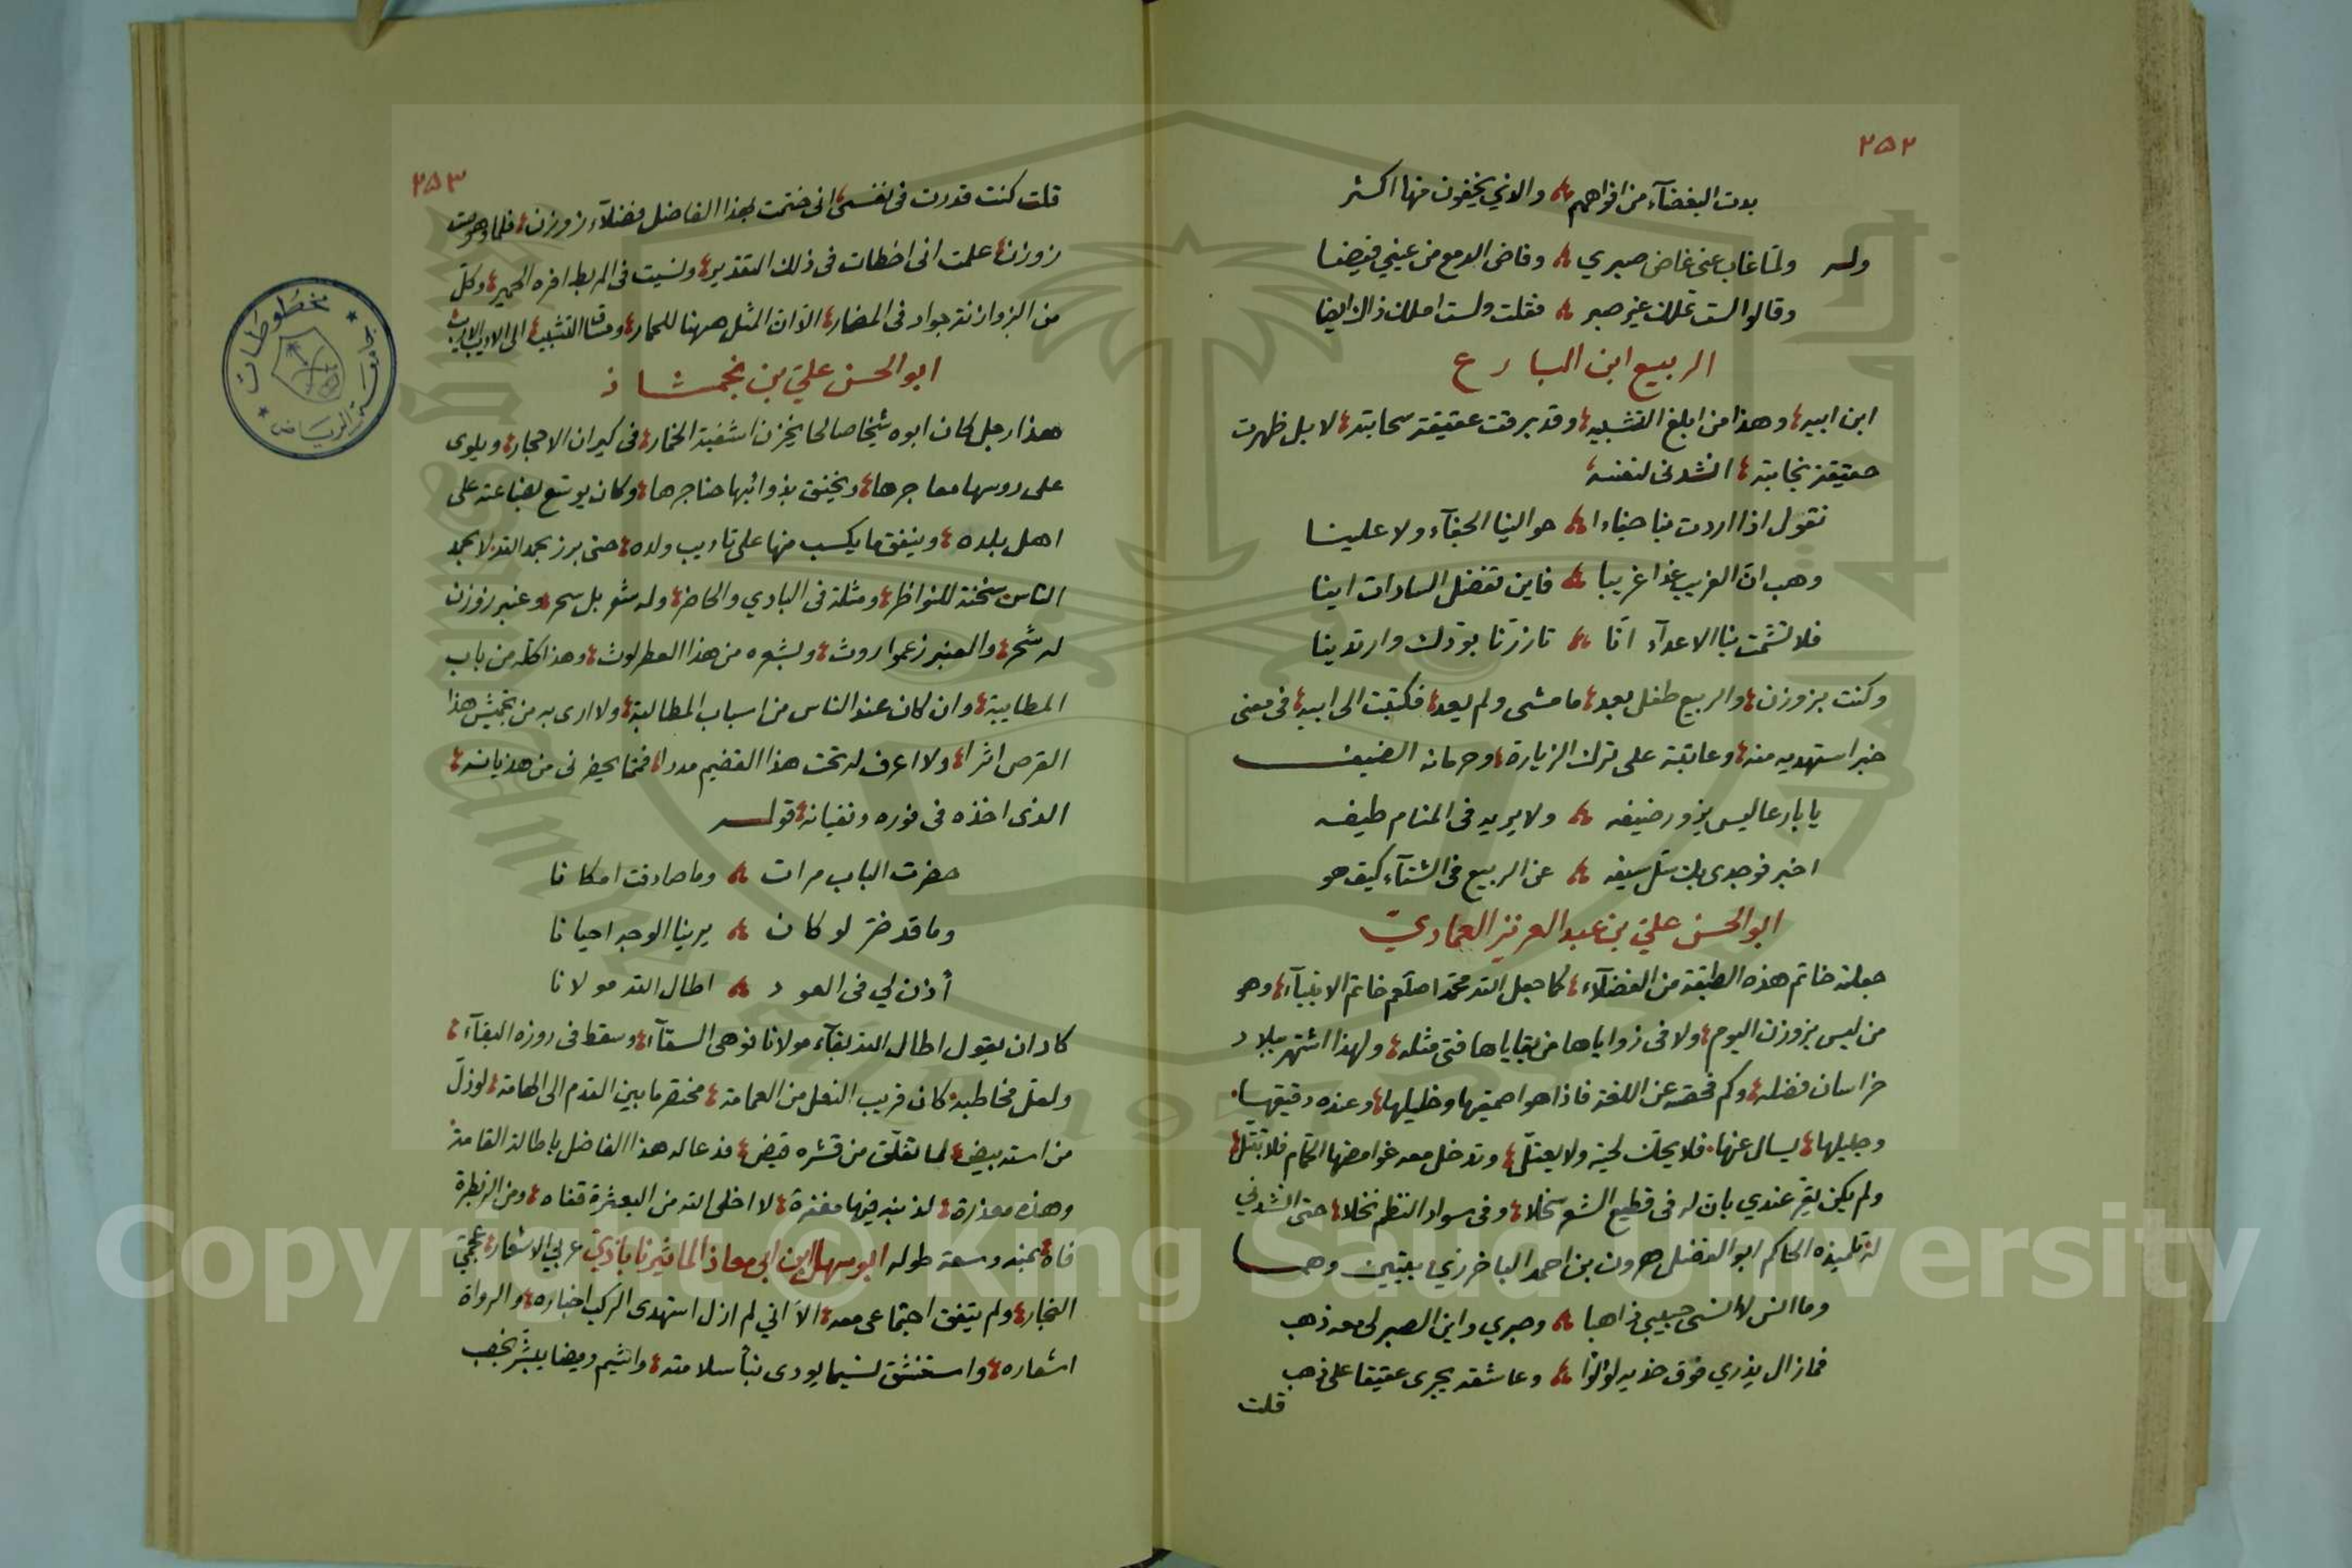 ٢٥٢
بدت البغضآء من افواههم والذي يخفون منها اكثر
وله ولمّا غاب عنى غاض صبري وفاض الدمع من عيني فيضا
وقالوا لست تملك غير صبر فقلت ولست املك ذاك ايضا
الربيع ابن البارع
ابن ابيه وهذا من ابلغ التشبيه وقد برقت عقيقة سحابته لا بل ظهرت
حقيقة نجابته انشدنى لنفسه
نقول اذا اردت بنا جفاء حوالينا الجفآء ولا علينا
وهب انّ الغريب غدا غريبا فاين تفضل السادات اينا
فلا تشمت بنا الاعدآء انّا تازرّنا بودّك وارتدينا
وكنت بزوزن والربيع طفل بعد ما مشى ولم يعد فكتبت الى ابيه فى معنى
خبر استهديه منه وعاتبته على ترك الزيارة وحرمانه الضيف
يا بارعا ليس يزور ضيفه ولا يريه فى المنام طيفه
اخبر فوجدى بك سلّ سيفه عن الربيع فى الشتآء كيف هو
ابو الحسن علىّ بن عبد العزيز العماديّ
جعلته خاتم هذه الطبقة من الفضلآء كما جعل الله محمّدا صلعم خاتم الانبيآء وهو
من ليس بزوزن اليوم ولا فى زواياها من بقاياها فتى مثله ولهذا اشتهر ببلاد
خراسان فضله وكم فحصته عن اللغة فاذا هو اصمعيها وخليلها وعنده دقيقها
وجليلها يسال عنها فلا يحكّ لحية ولا يعتلّ وتدخل معه غوامضها الحمّام فلا تبتلّ
ولم يكن يقرّ عندي بان له فى قطيع الشعر سخلا وفى سواد النظم نخلا حتى انشدني
له تلميذه الحاكم ابو الفضل هرون بن احمد الباخرزي بيتين وهما
وما انس لا انسى حبيبي ذاهبا وصبري واين الصبر لى معه ذهب
فما زال يذري فوق خديه لؤلؤا وعاشقه يجرى عقيقا على ذهب
قلت
٢٥٣
قلت كنت قدرت فى نفسى انى ختمت بهذا الفاضل فضلآء زوزن فلما وهيت
زوزن علمت انى اخطات فى ذلك التقدير ونسيت فى المربط افره الحمير وكلّ
من الزوازنة جواد فى المضمار الّا انّ المثل ههنا للحمار
ابو الحسن علىّ بن نجمشاذ
هذا رجل كان ابوه شيخا صالحا يخزن اشفية الخمار فى كيران الاحجار ويلوى
على روسها معاجرها ويخنق بذوائبها حناجرها وكان يوسّع بضاعته على
اهل بلده وينفق ما يكسب منها على تاديب ولده حتى برز بحمد الله لا بحمد
الناس سخنة للنواظر ومثلة فى البادي والحاضر وله شعر بل سحر وعنبر زوزن
له شحر والعنبر زعموا روث وبشعره من هذا العطر لوث وهذا كله من باب
المطايبة وان كان عند الناس من اسباب المطالبة ولا ارى به من تجميش هذا
القرص اثرا ولا اعرف له تحت هذا القضيم مدرا فمما يحضرنى من هذيانه
الذى اخذه فى فوره وغثيانه قوله
حضرت الباب مرات وما صادفت امكانا
وما قد ضرّ لو كان يرينا الوجه احيانا
أذن لي فى العود اطال الله مولانا
كاد ان يقول اطال الله بقآء مولانا فوهى السقآء وسقط فى روزه البقآء
ولعل مخاطبه كان قريب النعل من العمامة مختصر ما بين القدم الى الهامة لو ذلّ
من استه بيض لما تفلّق من قشره قيض فدعا له هذا الفاضل باطالة القامة
وهذه معذرة لذنبه فيها مغفرة لا اخلى الله من البعثرة قفاه ومن الزنطرة
فاه بمنه وسعة طوله ابو سهل ابن ابى معاذ الماثيرناباذيّ عربيّ الاشعار عجميّ
النجار ولم يتفق اجتماعى معه الّا انّي لم ازل استهدى الركب اخباره والرواة
اشعاره واستنشق نسيما يودى نبأ سلامته واشيم وميضا يبشّر بخصب
مخطوطات جامعة الرياض
Copyright © King Saud University